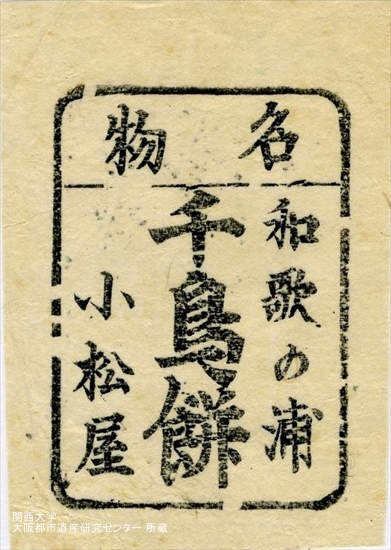 名物
和歌の浦
千鳥餅
小松屋
関西大学
大阪都市遺産研究センター 所蔵